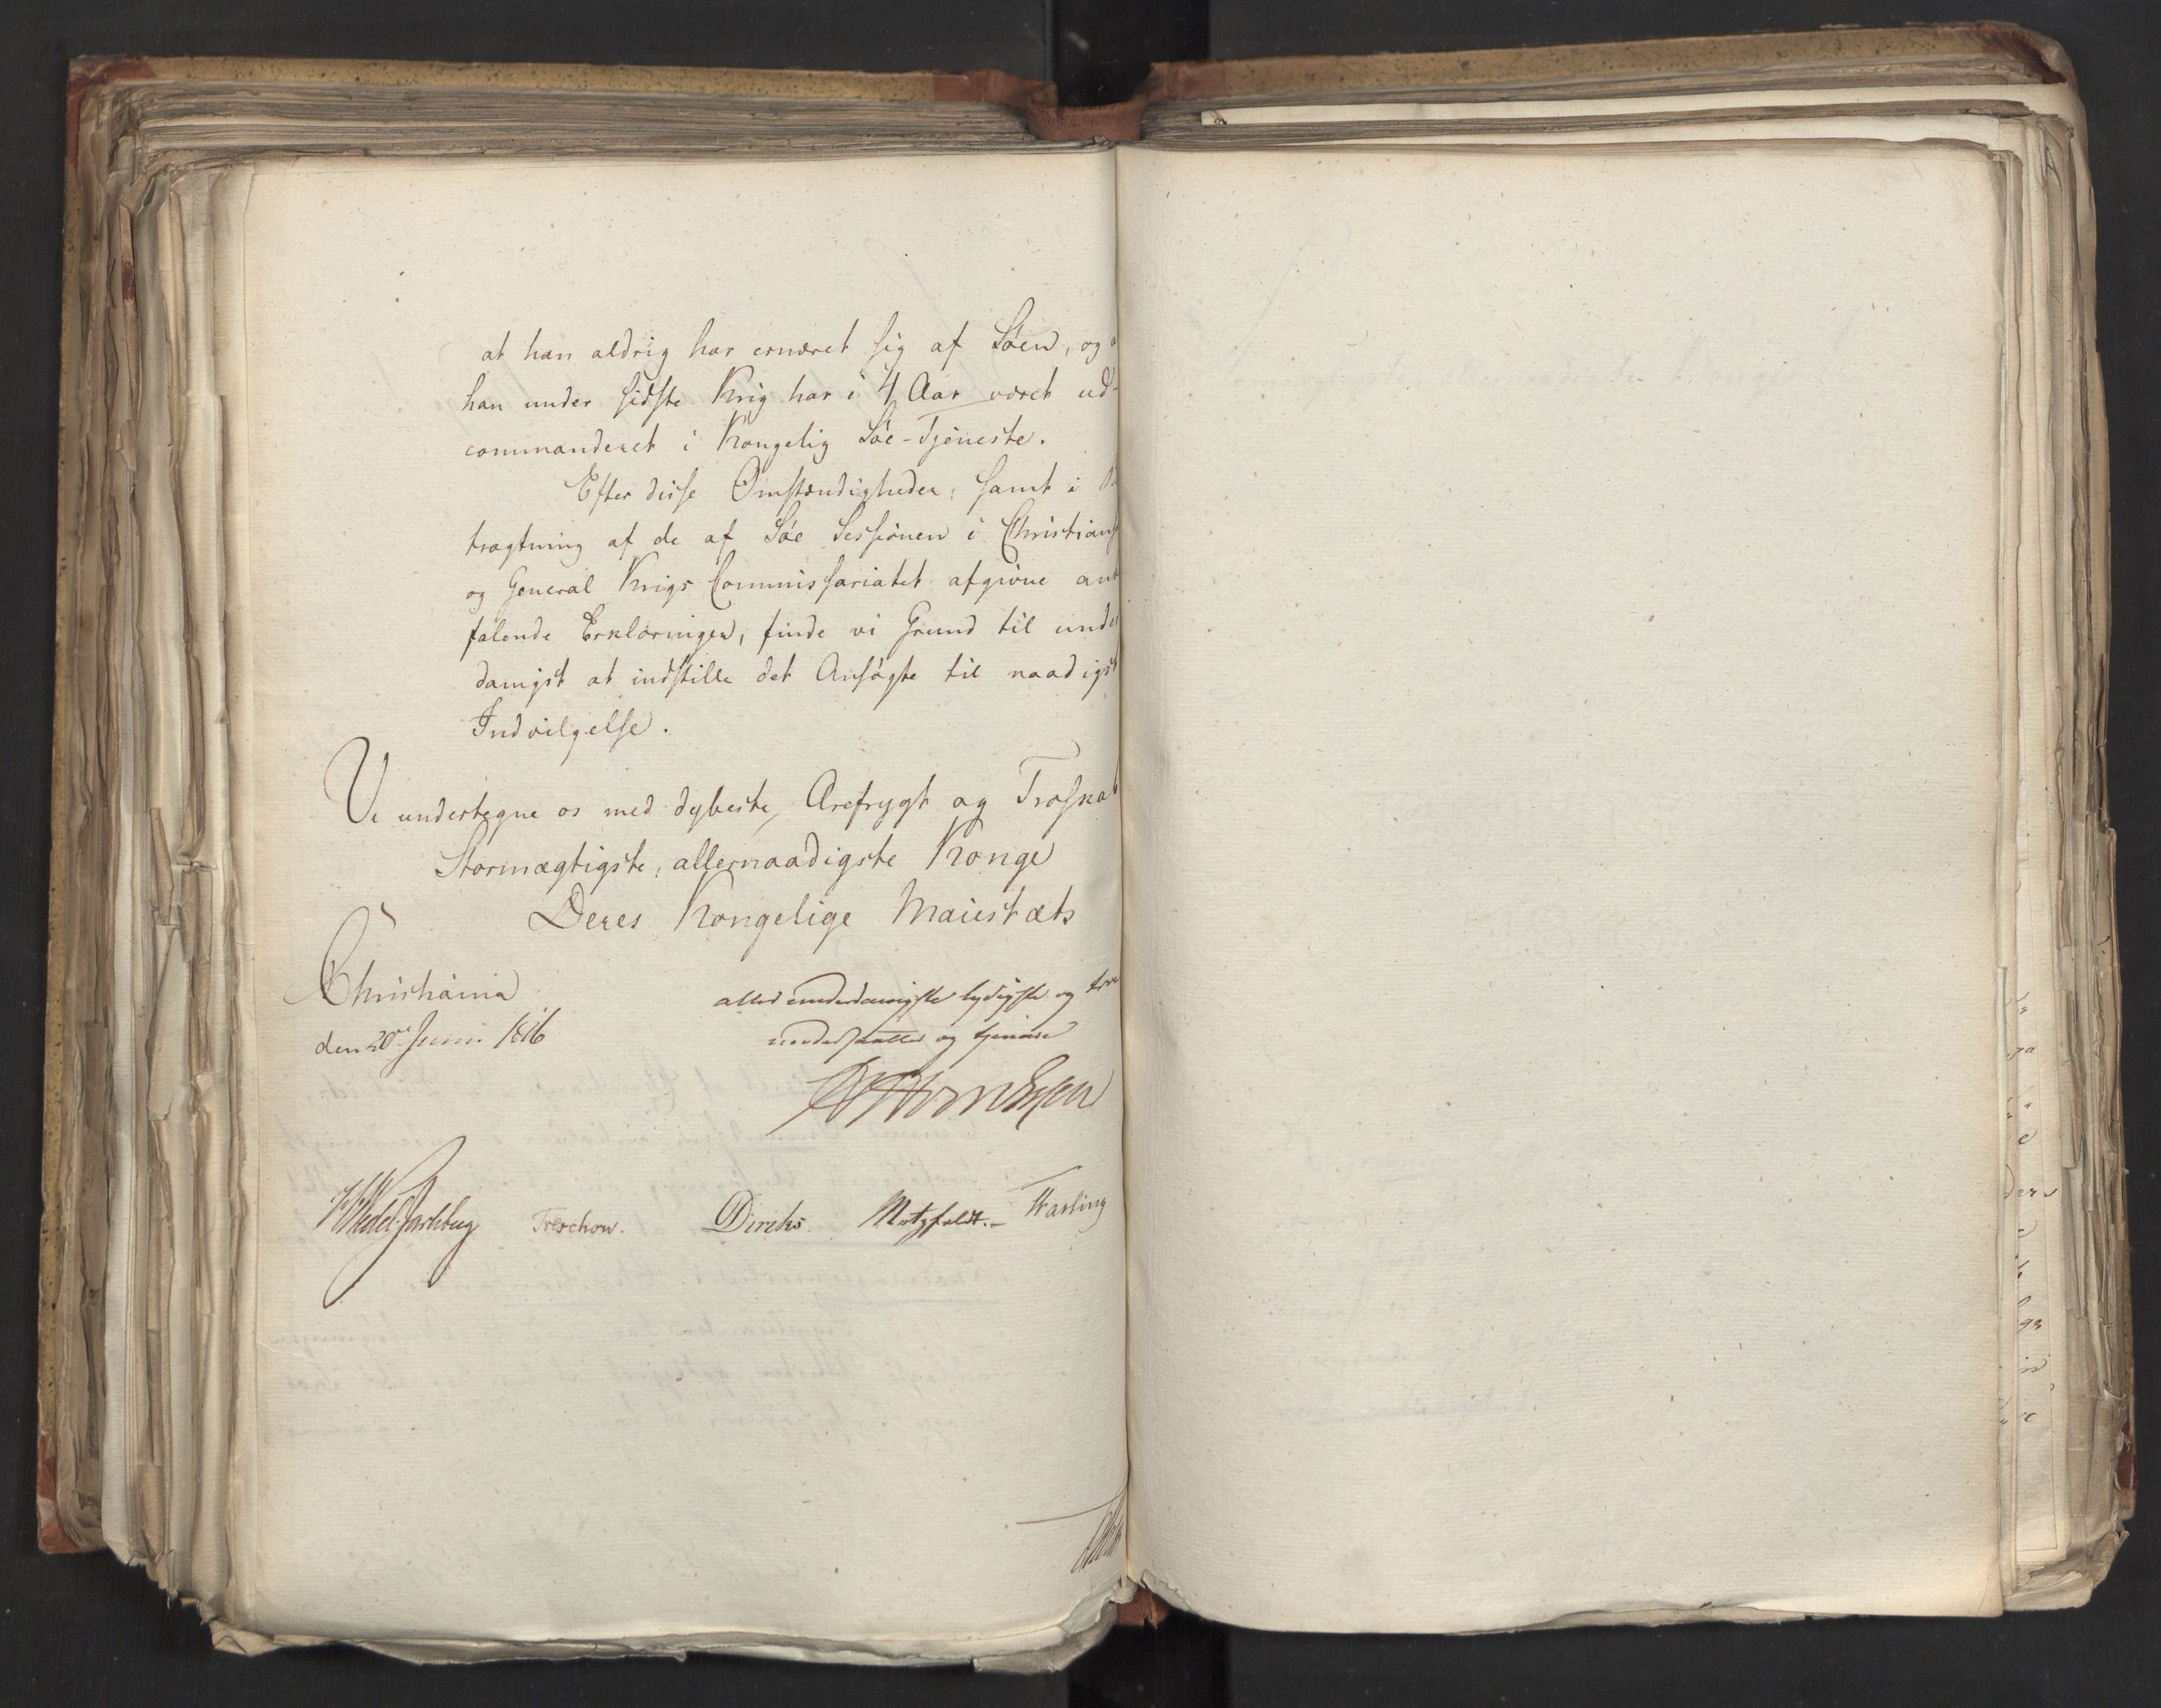 at han aldrig har ernæret sig af Søen, og a
han under sidste Krig har i 4 Aar været ud-
commanderet i Kongelig Søe-Tjeneste.
Efter disse Omstændigheder, samt i Be
tragtning af de af Søe Sessionen i Christians
og General Krigs Commissariatet afgivne anb
falende Erklæringer, finde vi Grund til under
danigst at indstille det Ansøgte til naadigst
Indvilgelse.
Vi undertegne os med dybeste Ærefrygt og Troskab
Stormægtigste, allernaadigste Konge
Deres Kongelige Maiestæts
Christiania
den 20de Juni 1816
allerunderdanigste lydigste og tro
undersaatter og tjenere
HHvonEssen
HWedel Jarlsberg Treschow. Diriks Motzfeldt.- Fasting